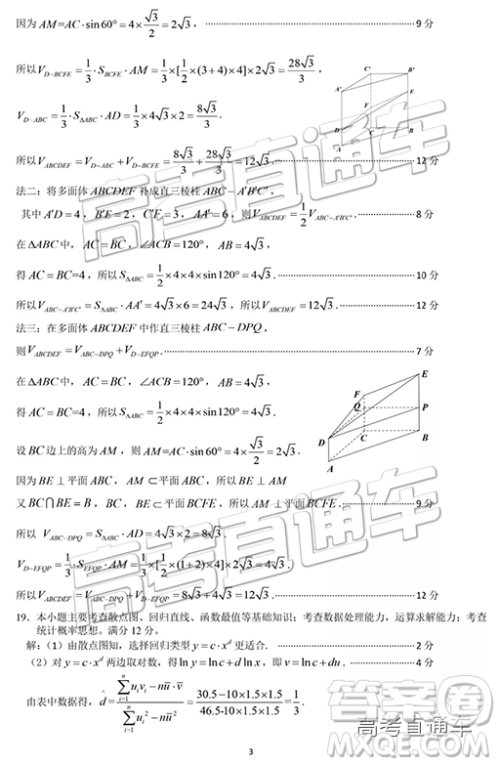 因为 AM=AC·sin60°=4×√3/2=2√3，……9 分
所以V_{D-BCFE}=1/3·S_{BCFE}·AM=1/3×[1/2×(3+4)×4]×2√3=28√3/3，
V_{D-ABC}=1/3·S_{△ABC}·AD=1/3×4√3×2=8√3/3．
所以V_{ABCDEF}=V_{D-ABC}+V_{D-BCFE}=8√3/3+28√3/3=12√3．……12 分
法二：将多面体 ABCDEF 补成直三棱柱 ABC−A'B'C'，
其中 A'D=4，B'E=2，C'F=3，AA'=6，则V_{ABCDEF}=1/2 V_{ABC−A'B'C'}……8 分
在ΔABC中，AC=BC，∠ACB=120°，AB=4√3，
得 AC=BC=4，所以S_{△ABC}=1/2×4×4×sin120°=4√3．……10 分
所以V_{ABC−A'B'C'}=S_{△ABC}·AA'=4√3×6=24√3，所以V_{ABCDEF}=12√3．……12 分
法三：在多面体 ABCDEF 中作直三棱柱 ABC−DPQ，
则V_{ABCDEF}=V_{ABC−DPQ}+V_{D−EFQP}……7 分
在ΔABC中，AC=BC，∠ACB=120°，AB=4√3，
得 AC=BC=4，所以S_{△ABC}=1/2×4×4×sin120°=4√3．
设 BC 边上的高为 AM，则 AM=AC·sin60°=4×√3/2=2√3．
因为 BE⊥平面ABC，AM⊂平面ABC，所以 BE⊥AM
又 BC∩BE=B，BC，BE⊂平面BCFE，所以 AM⊥平面BCFE．……9 分
所以 V_{ABC−DPQ}=S_{△ABC}·AD=4√3×2=8√3．
V_{D−EFQP}=1/3·S_{EFQP}·AM=1/3×[1/2×(1+2)×4]×2√3=4√3．
所以V_{ABCDEF}=V_{ABC−DPQ}+V_{D−EFQP}=8√3+4√3=12√3．……12 分
19. 本小题主要考查散点图、回归直线、函数最值等基础知识；考查数据处理能力，运算求解能力；考查
统计概率思想。满分 12 分。
解：（1）由散点图知，选择回归类型 y=c·x^d 更适合．……2 分
（2）对 y=c·x^d 两边取对数，得 ln y=ln c+d ln x，即 v=ln c+du……4 分
由表中数据得，d̂=(∑_{i=1}^{n}u_i v_i−nū·v̄)/(∑_{i=1}^{n}u_i²−nū²)=(30.5−10×1.5×1.5)/(46.5-10×1.5×1.5)=1/3，
3
A' C' B' F E D A C B
F E Q P D C B A
高考直通车
高考直通车
高考直通车
答案圈
MXQE.COM
高考直通车